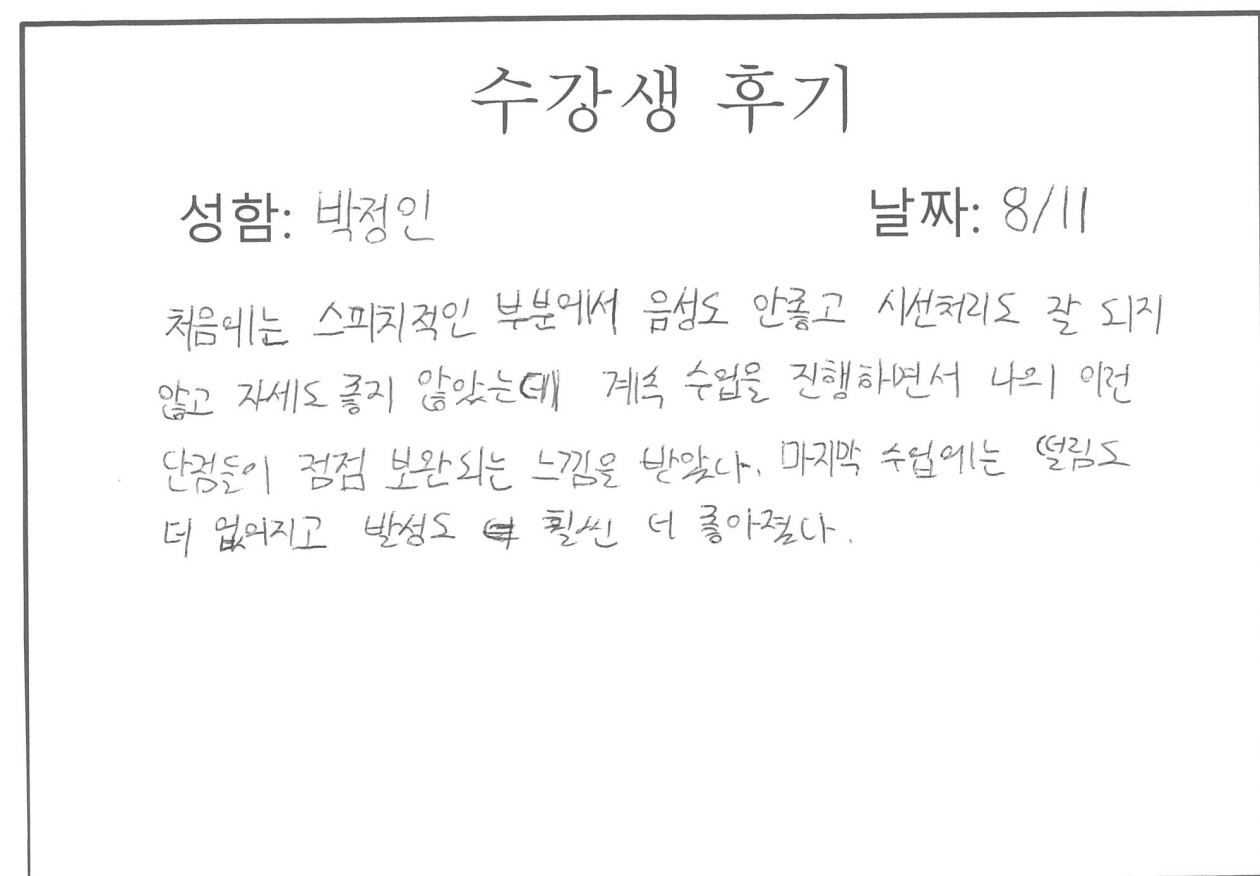 수강생 후기
성함: 박정인 날짜: 8/11
처음에는 스피치적인 부분에서 음성도 안좋고 시선처리도 잘 되지
않고 자세도 좋지 않았는데 계속 수업을 진행하면서 나의 이런
단점들이 점점 보완되는 느낌을 받았다. 마지막 수업에는 떨림도
더 없어지고 발성도 훨씬 더 좋아졌다.